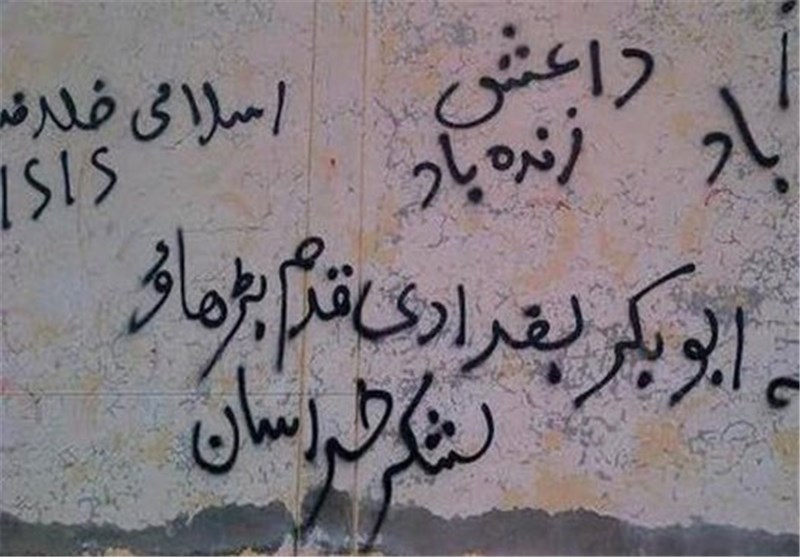 داعش
زنده باد
باد
اسلامی
ISIS
ابوبکر بغدادی قدم بڑھاؤ
لشکر خراسان